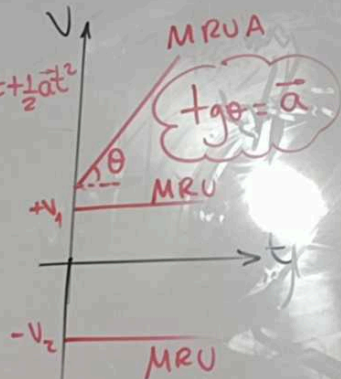 V
MRUA
=+½a⃗t²
tgθ = a⃗
θ
MRU
+V₁
t
-V₂
MRU